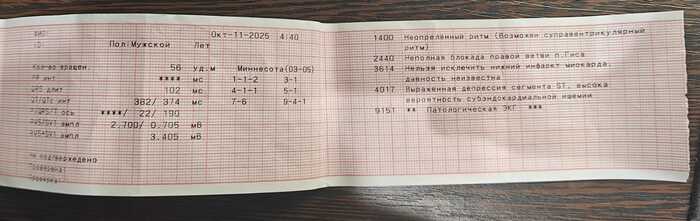 ФИО:
ID:
Окт-11-2025 4:40
Пол:Мужской Лет
Кол-во вращен. 56 уд.м Миннесота(03-05)
PR инт **** мс 1-1-2 3-1
QRS длит 102 мс 4-1-1 5-1
QT/QTc инт 382/ 374 мс 7-6 9-4-1
P/QRS/T ось ****/ 22/ 190
RV5/SV1 ампл 2.700/ 0.705 мВ
RV5+SV1 ампл 3.405 мВ
Не подтверждено
Проверена:
1400 Неопределённый ритм (Возможен суправентрикулярный
ритм)
2440 Неполная блокада правой ветви п.Гиса
3614 Нельзя исключить нижний инфаркт миокарда,
давность неизвестна
4017 Выраженная депрессия сегмента ST, высока
вероятность субэндокардиальной ишемии
9151 ** Патологическая ЭКГ ***